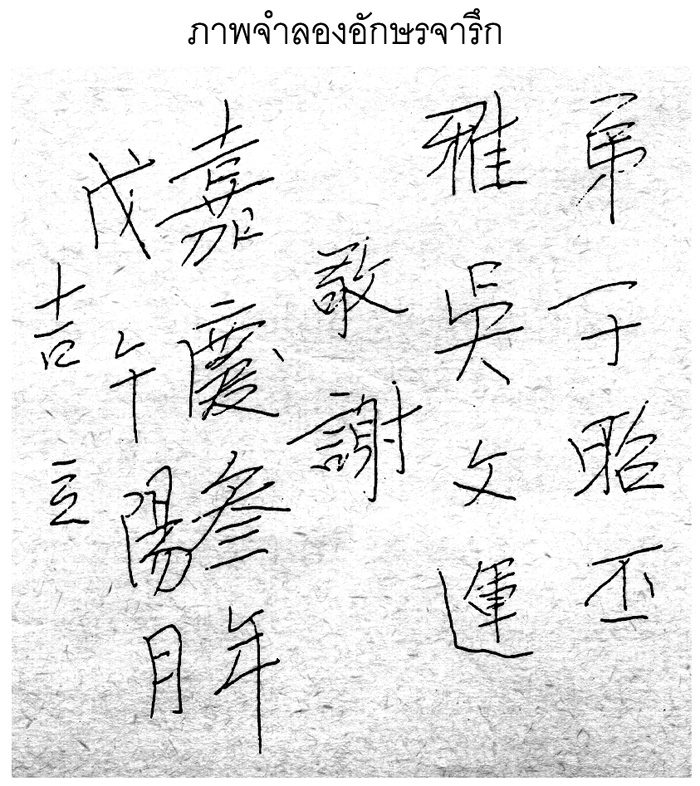 ภาพจำลองอักษรจารึก
弟子昭丕
雅吳文運
敬謝
嘉慶叁年
戊午陽月
吉立